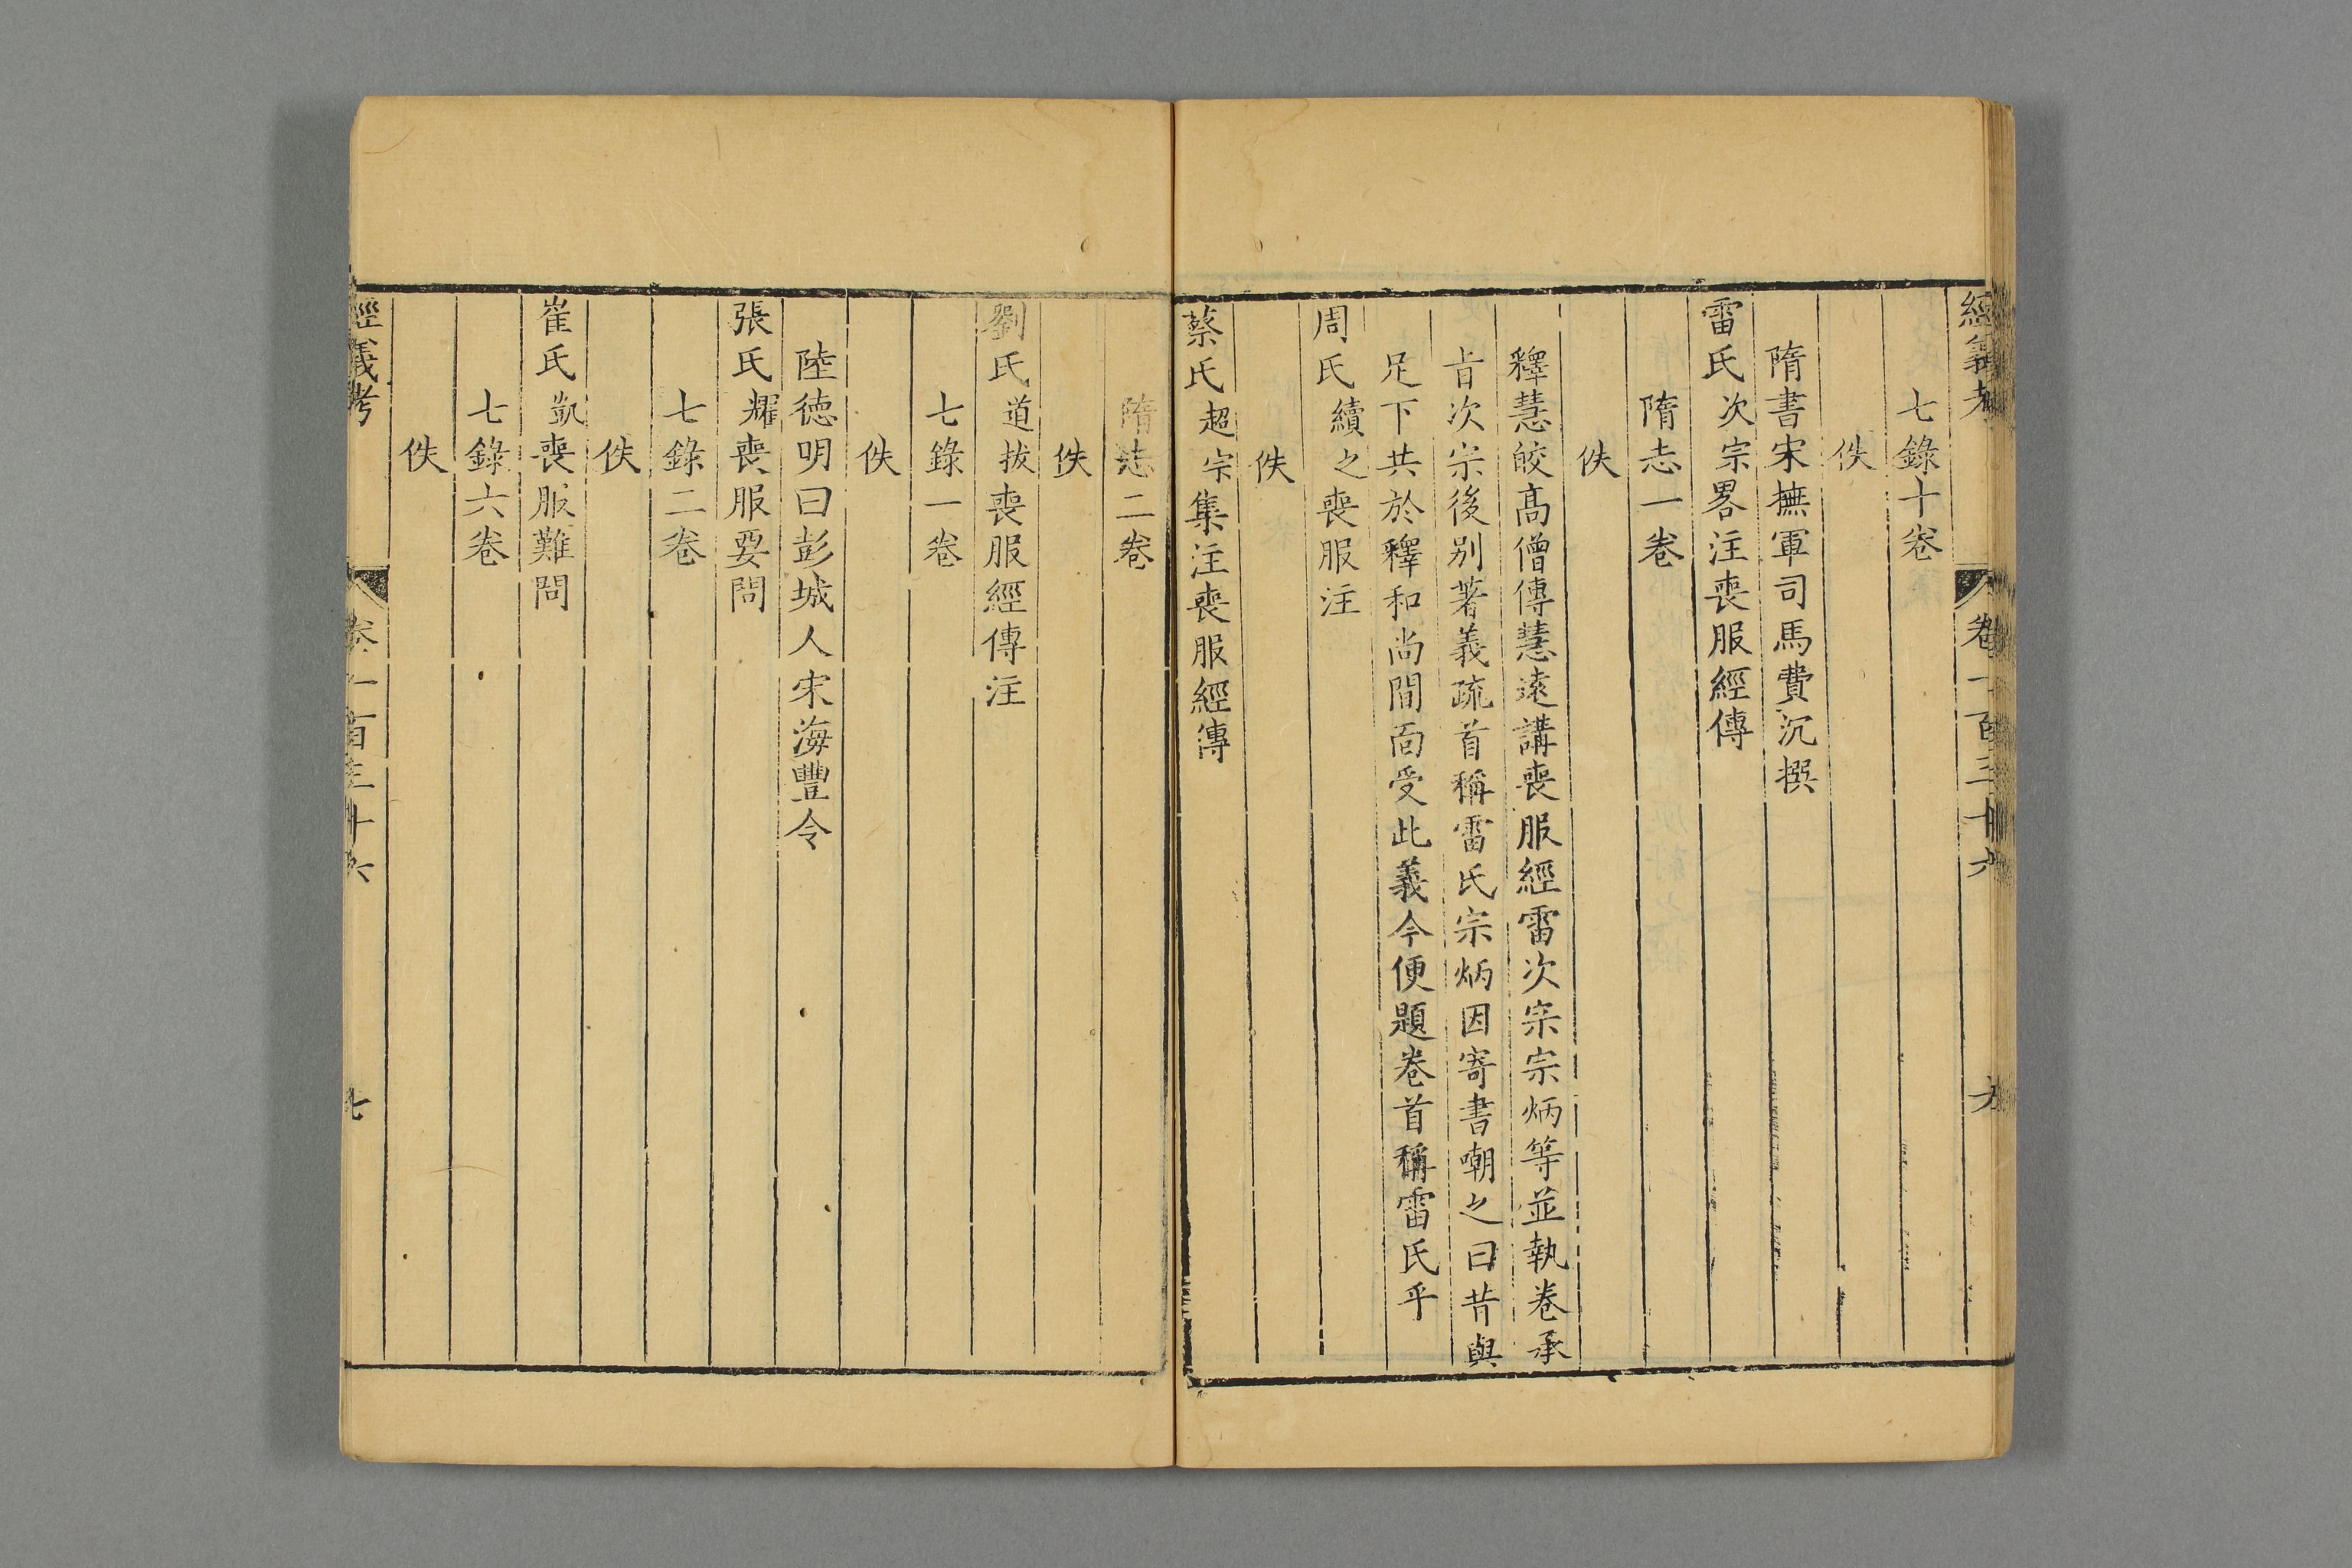 經義考 卷一百三十六 六
七錄十卷
佚
隋書宋撫軍司馬費沉撰
雷氏次宗畧注喪服經傳
隋志一卷
佚
釋慧皎高僧傳慧遠講喪服經雷次宗宗炳等並執卷承
旨次宗後别著義疏首稱雷氏宗炳因寄書嘲之曰昔與
足下共於釋和尚間面受此義今便題卷首稱雷氏乎
周氏續之喪服注
佚
蔡氏超宗集注喪服經傳
隋志二卷
佚
劉氏道拔喪服經傳注
七錄一卷
佚
陸德明曰彭城人宋海豐令
張氏耀喪服要問
七錄二卷
佚
崔氏凱喪服難問
七錄六卷
佚
經義考 卷一百三十六 七